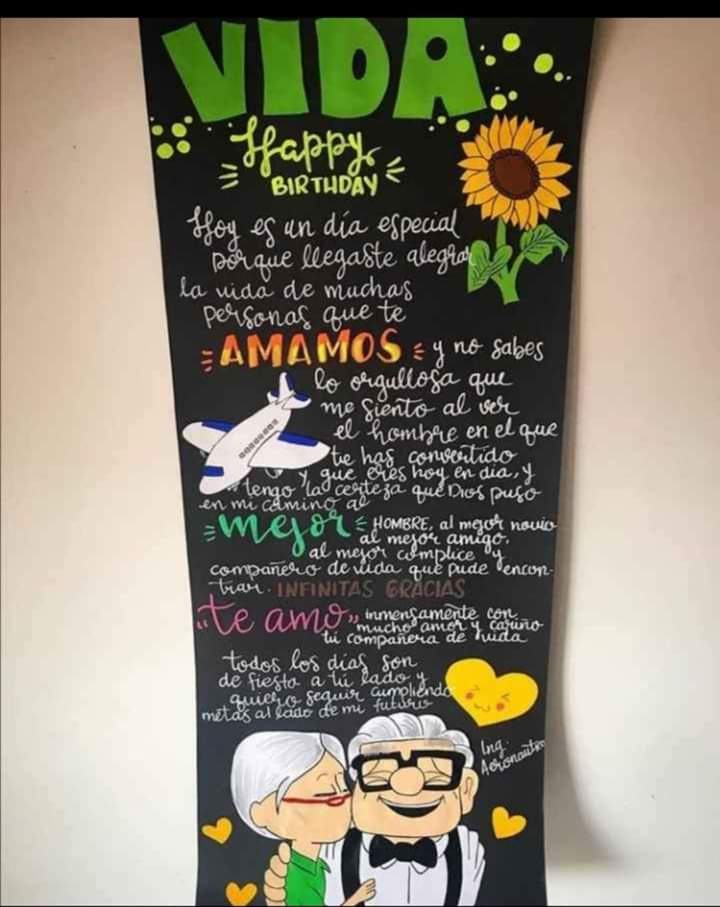 VIDA
Happy
BIRTHDAY
Hoy es un día especial
porque llegaste alegrar
la vida de muchas
personas que te
AMAMOS y no sabes
lo orgullosa que
me siento al ver
el hombre en el que
te has convertido
y que eres hoy en día, y
tengo la certeza que Dios puso
en mi camino al
mejor HOMBRE, al mejor novio
al mejor amigo,
al mejor cómplice y
compañero de vida que pude encon-
trar. INFINITAS GRACIAS
"te amo" inmensamente con
mucho amor y cariño
tú compañera de vida
todos los días son
de fiesta a tú lado y
quiero seguir cumpliendo
metas al lado de mi futuro
Ing.
Aeronautico